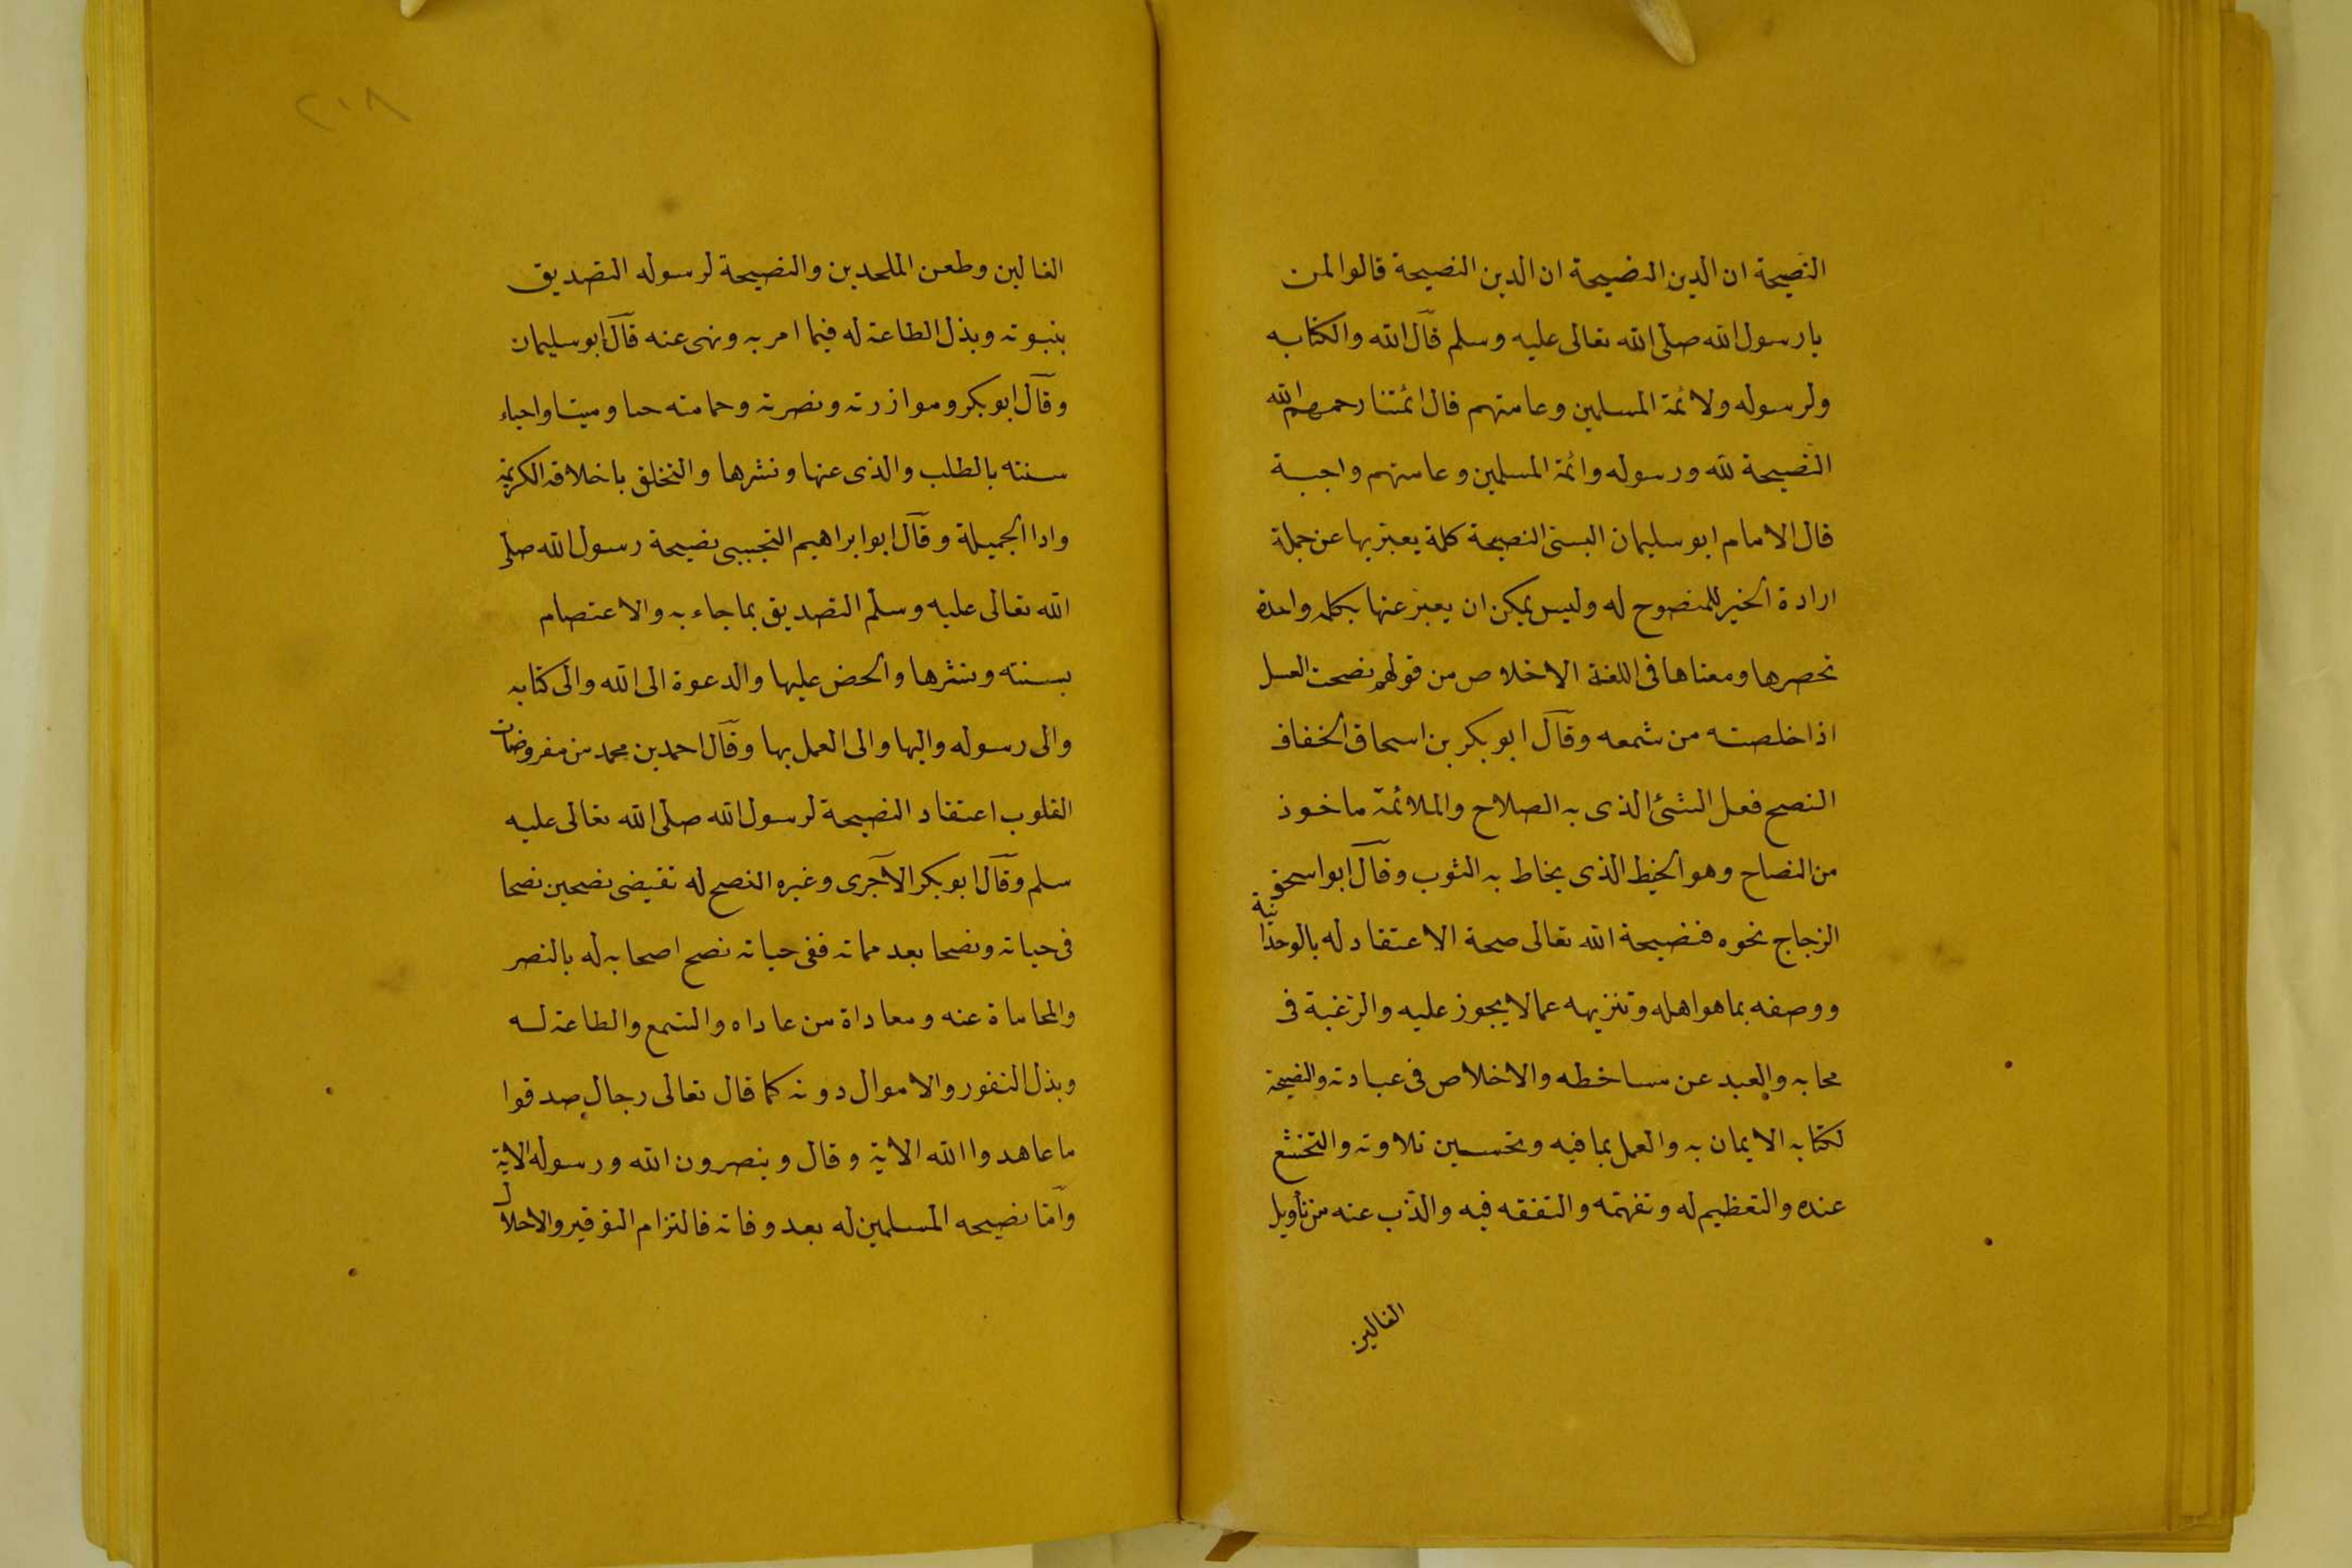 النصيحة ان الدين النصيحة ان الدين النصيحة قالوا لمن
يارسول الله صلى الله تعالى عليه وسلم قال الله والكتابه
ولرسوله ولائمة المسلمين وعامتهم قال ائمتنا رحمهم الله
النصيحة لله ورسوله وائمة المسلمين وعامتهم واجبة
قال الامام ابو سليمان البستى النصيحة كلمة يعبر بها عن جملة
ارادة الخير للمنصوح له وليس يمكن ان يعبر عنها بكلمه واحدة
تحصرها ومعناها فى اللغة الاخلاص من قولهم نصحت العسل
اذا خلصته من شمعه وقال ابو بكر بن اسحاق الخفاف
النصح فعل الشئ الذى به الصلاح والملائمة ماخوذ
من النصاح وهو الخيط الذى يخاط به الثوب وقال ابو اسحق
الزجاج نحوه فنصيحة الله تعالى صحة الاعتقاد له بالوحدانية
ووصفه بما هو اهله وتنزيهه عما لا يجوز عليه والرغبة فى
محابه والعبد عن مساخطه والاخلاص فى عبادته والنصيحة
لكتابه الايمان به والعمل بما فيه وتحسين تلاوته والتخشع
عنده والتعظيم له وتفهمه والتفقه فيه والذب عنه من تأويل
الغالين
٢١٨
الغالين وطعن الملحدين والنصيحة لرسوله التصديق
بنبوته وبذل الطاعة له فيما امر به ونهى عنه قال ابو سليمان
وقال ابو بكر وموازرته ونصرته وحمامته حيا وميتا واحياء
سنته بالطلب والذى عنها ونشرها والتخلق باخلاقه الكريمة
وادا الجميلة وقال ابو ابراهيم التجيبى نصيحة رسول الله صلى
الله تعالى عليه وسلم التصديق بما جاء به والاعتصام
بسنته ونشرها والحض عليها والدعوة الى الله والى كتابه
والى رسوله واليها والى العمل بها وقال احمد بن محمد من مفروضات
القلوب اعتقاد النصيحة لرسول الله صلى الله تعالى عليه
سلم وقال ابو بكر الآجرى وغيره النصح له تقيضى نصحين نصحا
فى حياته ونصحا بعد مماته ففى حياته نصح اصحابه له بالنصر
والمحاماة عنه ومعاداة من عاداه والسمع والطاعة له
وبذل النفور والاموال دونه كما قال تعالى رجال صدقوا
ما عاهدوا الله الاية وقال وينصرون الله ورسوله الاية
وأما نصيحه المسلمين له بعد وفاته فالتزام التوقير والاحلال